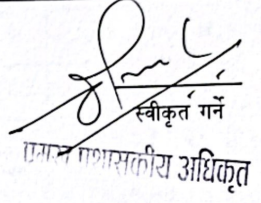 स्वीकृत गर्ने
प्रशासकीय अधिकृत